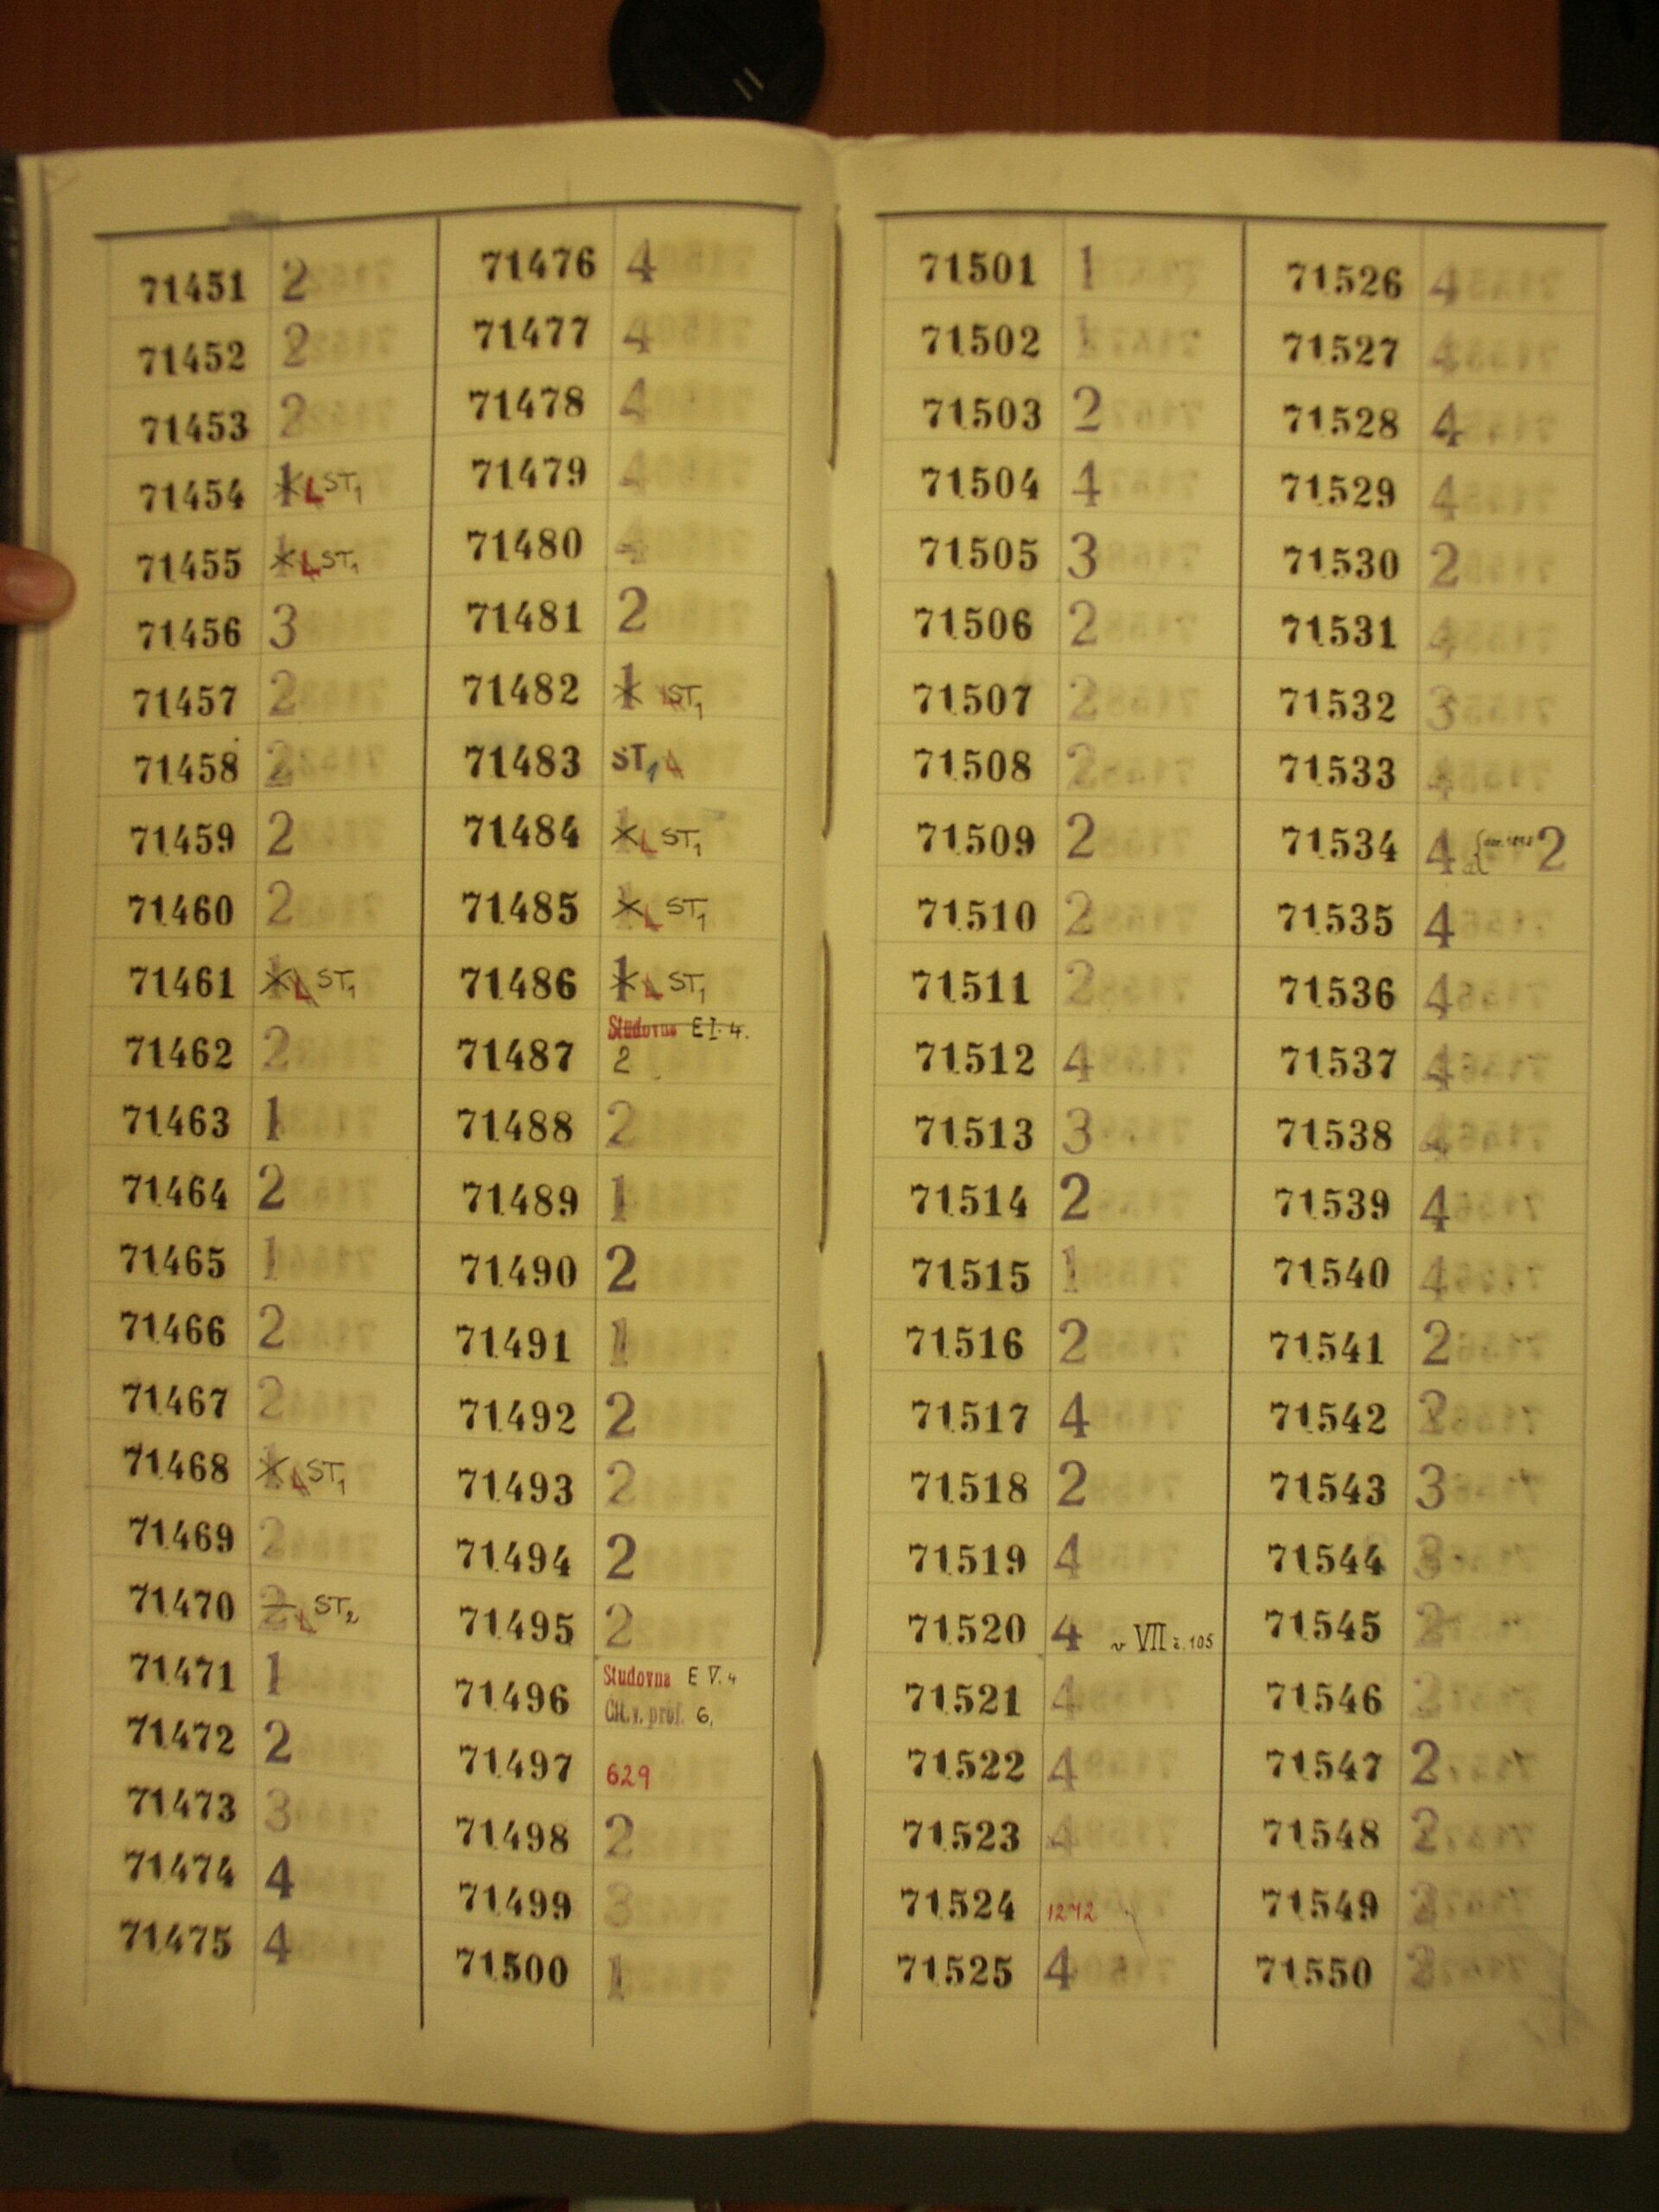 71451 2
71452 2
71453 2
71454 1 L ST1
71455 1 L ST1
71456 3
71457 2
71458 2
71459 2
71460 2
71461 1 L ST1
71462 2
71463 1
71464 2
71465 1
71466 2
71467 2
71468 1 L ST1
71469 2
71470 2 L ST2
71471 1
71472 2
71473 3
71474 4
71475 4
71476 4
71477 4
71478 4
71479 4
71480 4
71481 2
71482 1 L ST1
71483 ST1 L
71484 1 L ST1
71485 1 L ST1
71486 1 L ST1
Studovna E I. 4.
71487 2
71488 2
71489 1
71490 2
71491 1
71492 2
71493 2
71494 2
71495 2
Studovna E V. 4
71496 Cit. v. prof. 6.
71497 629
71498 2
71499 3
71500 1
71501 1
71502 1
71503 2
71504 4
71505 3
71506 2
71507 2
71508 2
71509 2
71510 2
71511 2
71512 4
71513 3
71514 2
71515 1
71516 2
71517 4
71518 2
71519 4
71520 4 v VII č. 105
71521 4
71522 4
71523 4
71524 1272
71525 4
71526 4
71527 4
71528 4
71529 4
71530 2
71531 4
71532 3
71533 4
71534 4 2
71535 4
71536 4
71537 4
71538 4
71539 4
71540 4
71541 2
71542 2
71543 3
71544 3
71545 2
71546 2
71547 2
71548 2
71549 3
71550 3